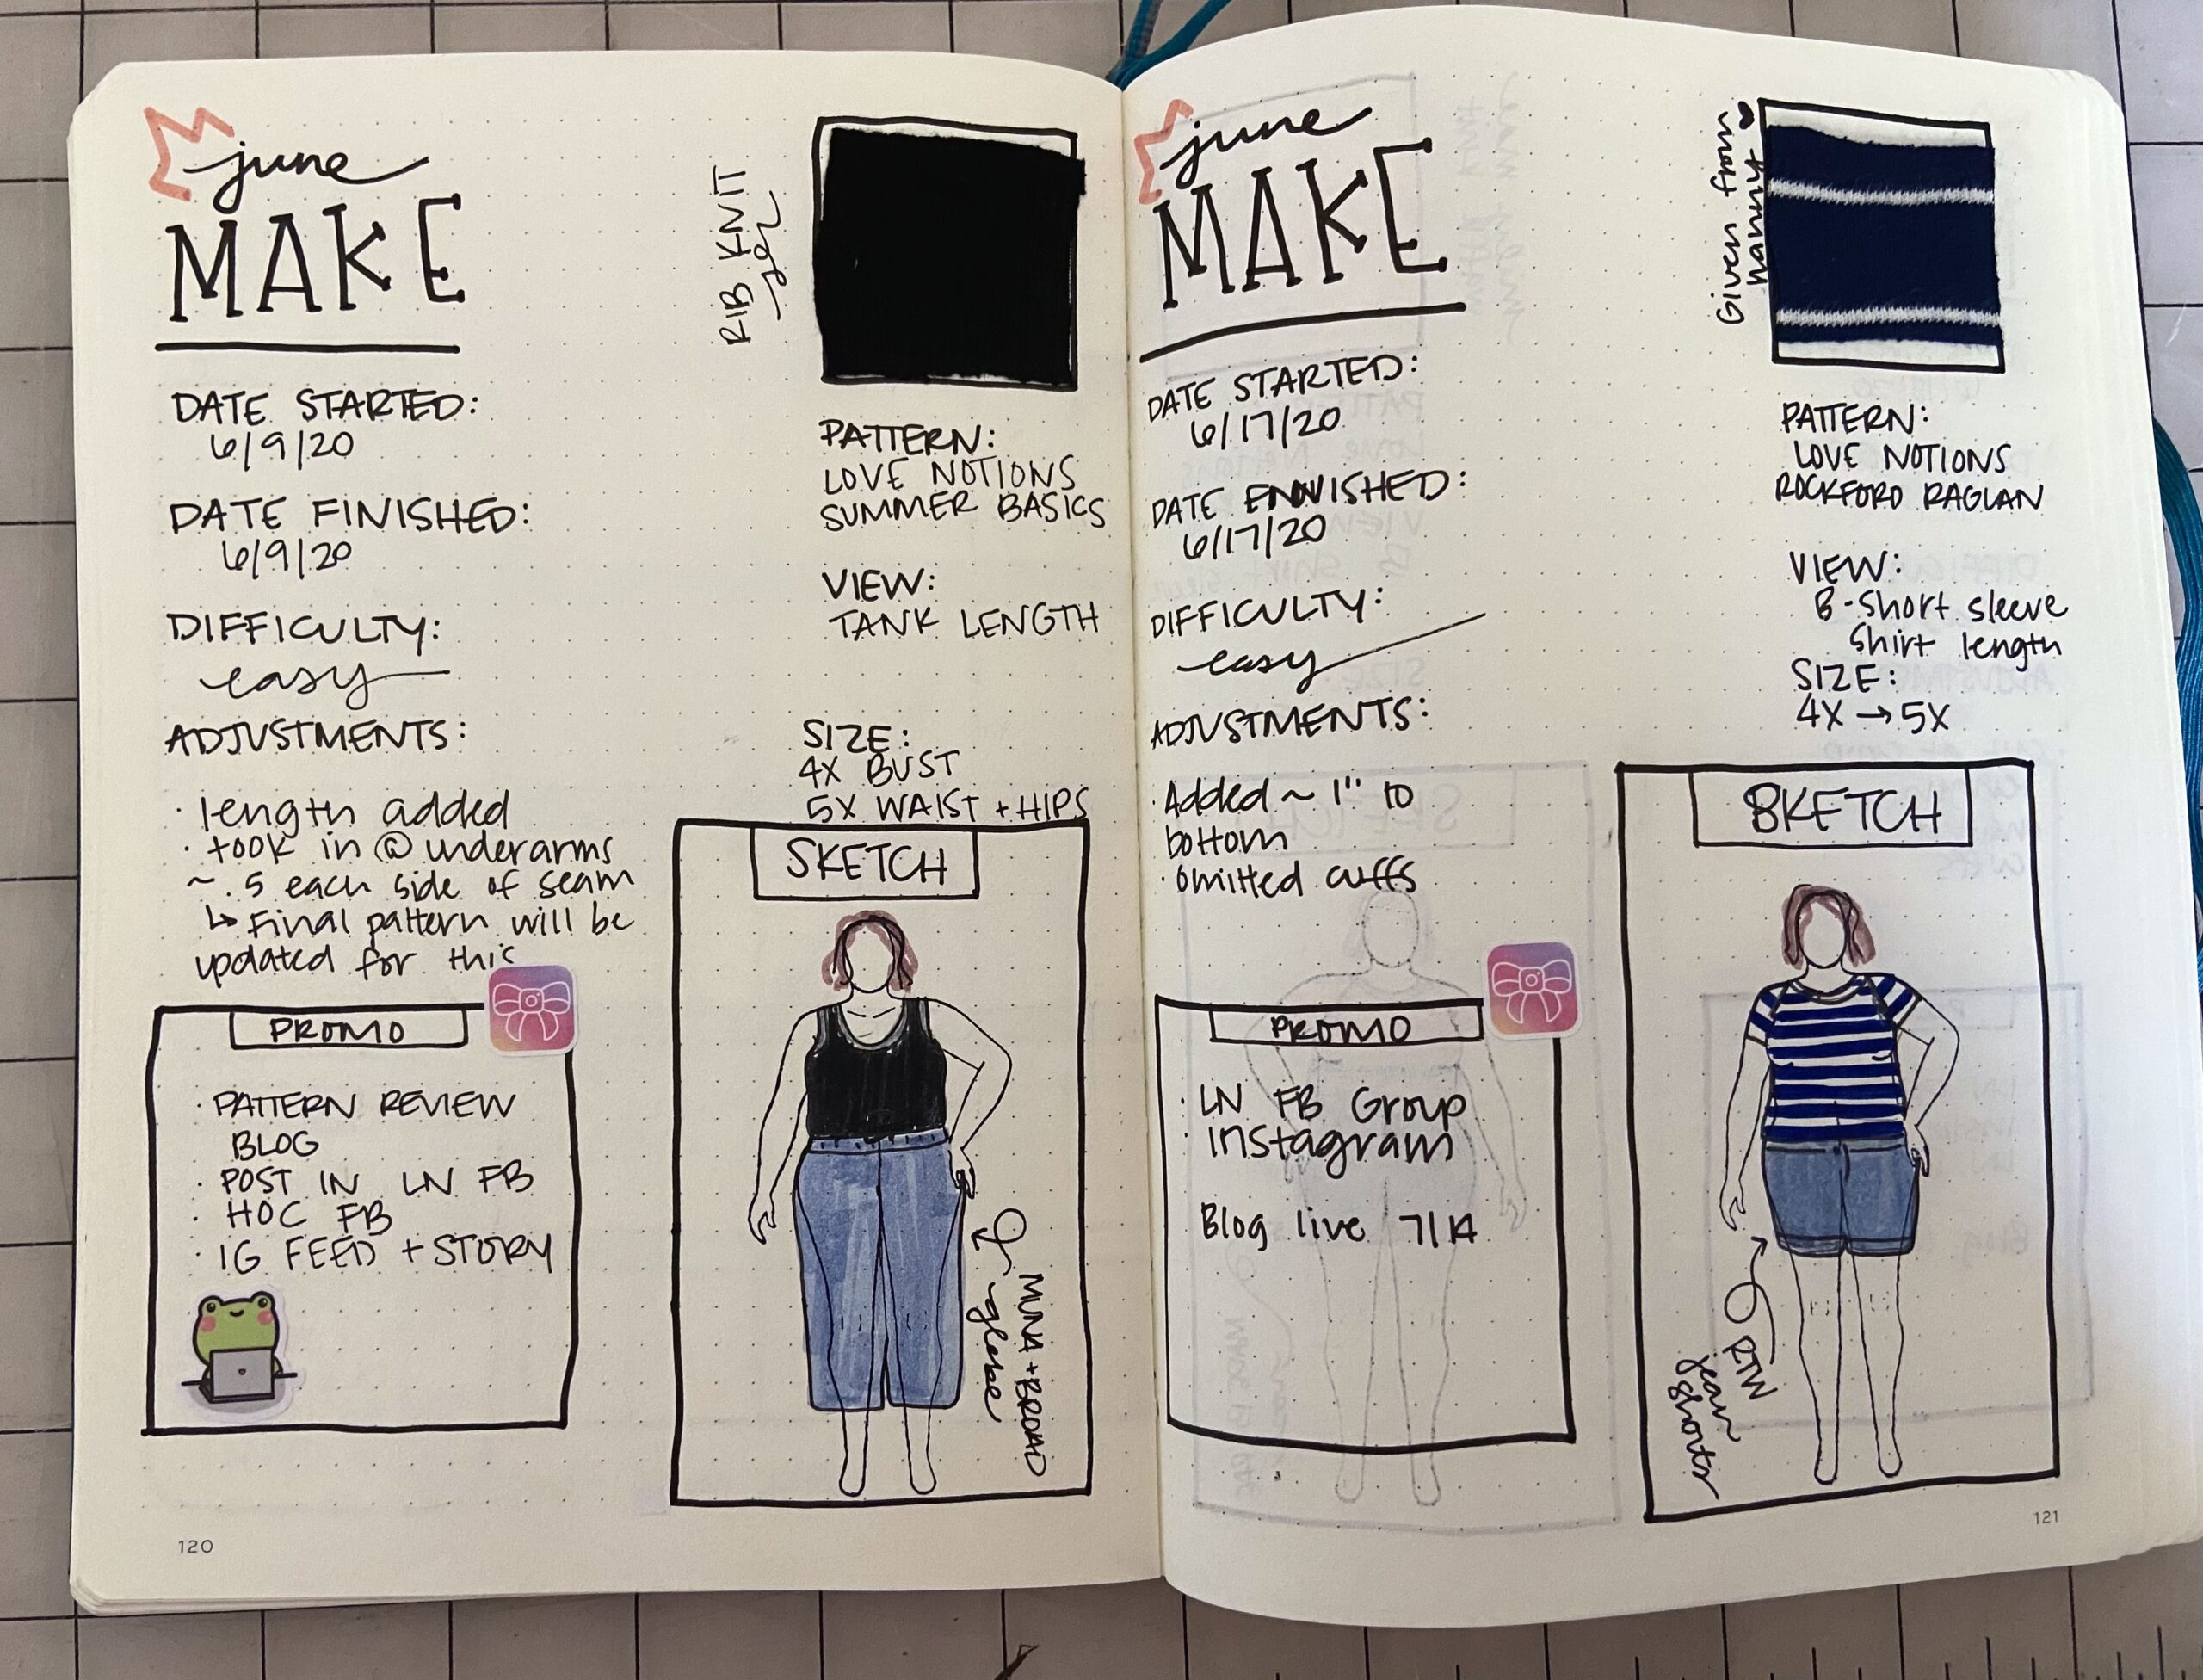 june
MAKE
RIB KNIT
DATE STARTED:
6/9/20
DATE FINISHED:
6/9/20
DIFFICULTY:
easy
ADJUSTMENTS:
· length added
· took in @ underarms
~ .5 each side of seam
↳ Final pattern will be
updated for this
PATTERN:
LOVE NOTIONS
SUMMER BASICS
VIEW:
TANK LENGTH
SIZE:
4X BUST
5X WAIST + HIPS
PROMO
· PATTERN REVIEW
BLOG
· POST IN LN FB
· HOC FB
· IG FEED + STORY
SKETCH
MUNA + BROAD
glebe
120
june
MAKE
Given from
Nanny ♥
DATE STARTED:
6/17/20
DATE FINISHED:
6/17/20
DIFFICULTY:
easy
ADJUSTMENTS:
· Added ~ 1" to
bottom
· omitted cuffs
PATTERN:
LOVE NOTIONS
ROCKFORD RAGLAN
VIEW:
B - Short sleeve
Shirt length
SIZE:
4X → 5X
PROMO
· LN FB Group
· Instagram
Blog live 7/14
SKETCH
RTW
jean
shorts
121